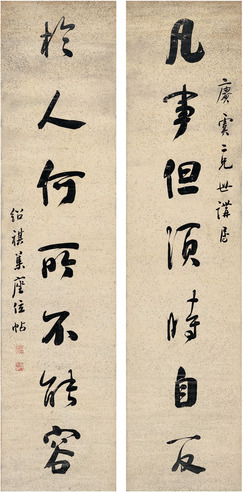 凡事但須時自反
廣雲二兄世講屬
於人何所不能容
紹祺集座位帖